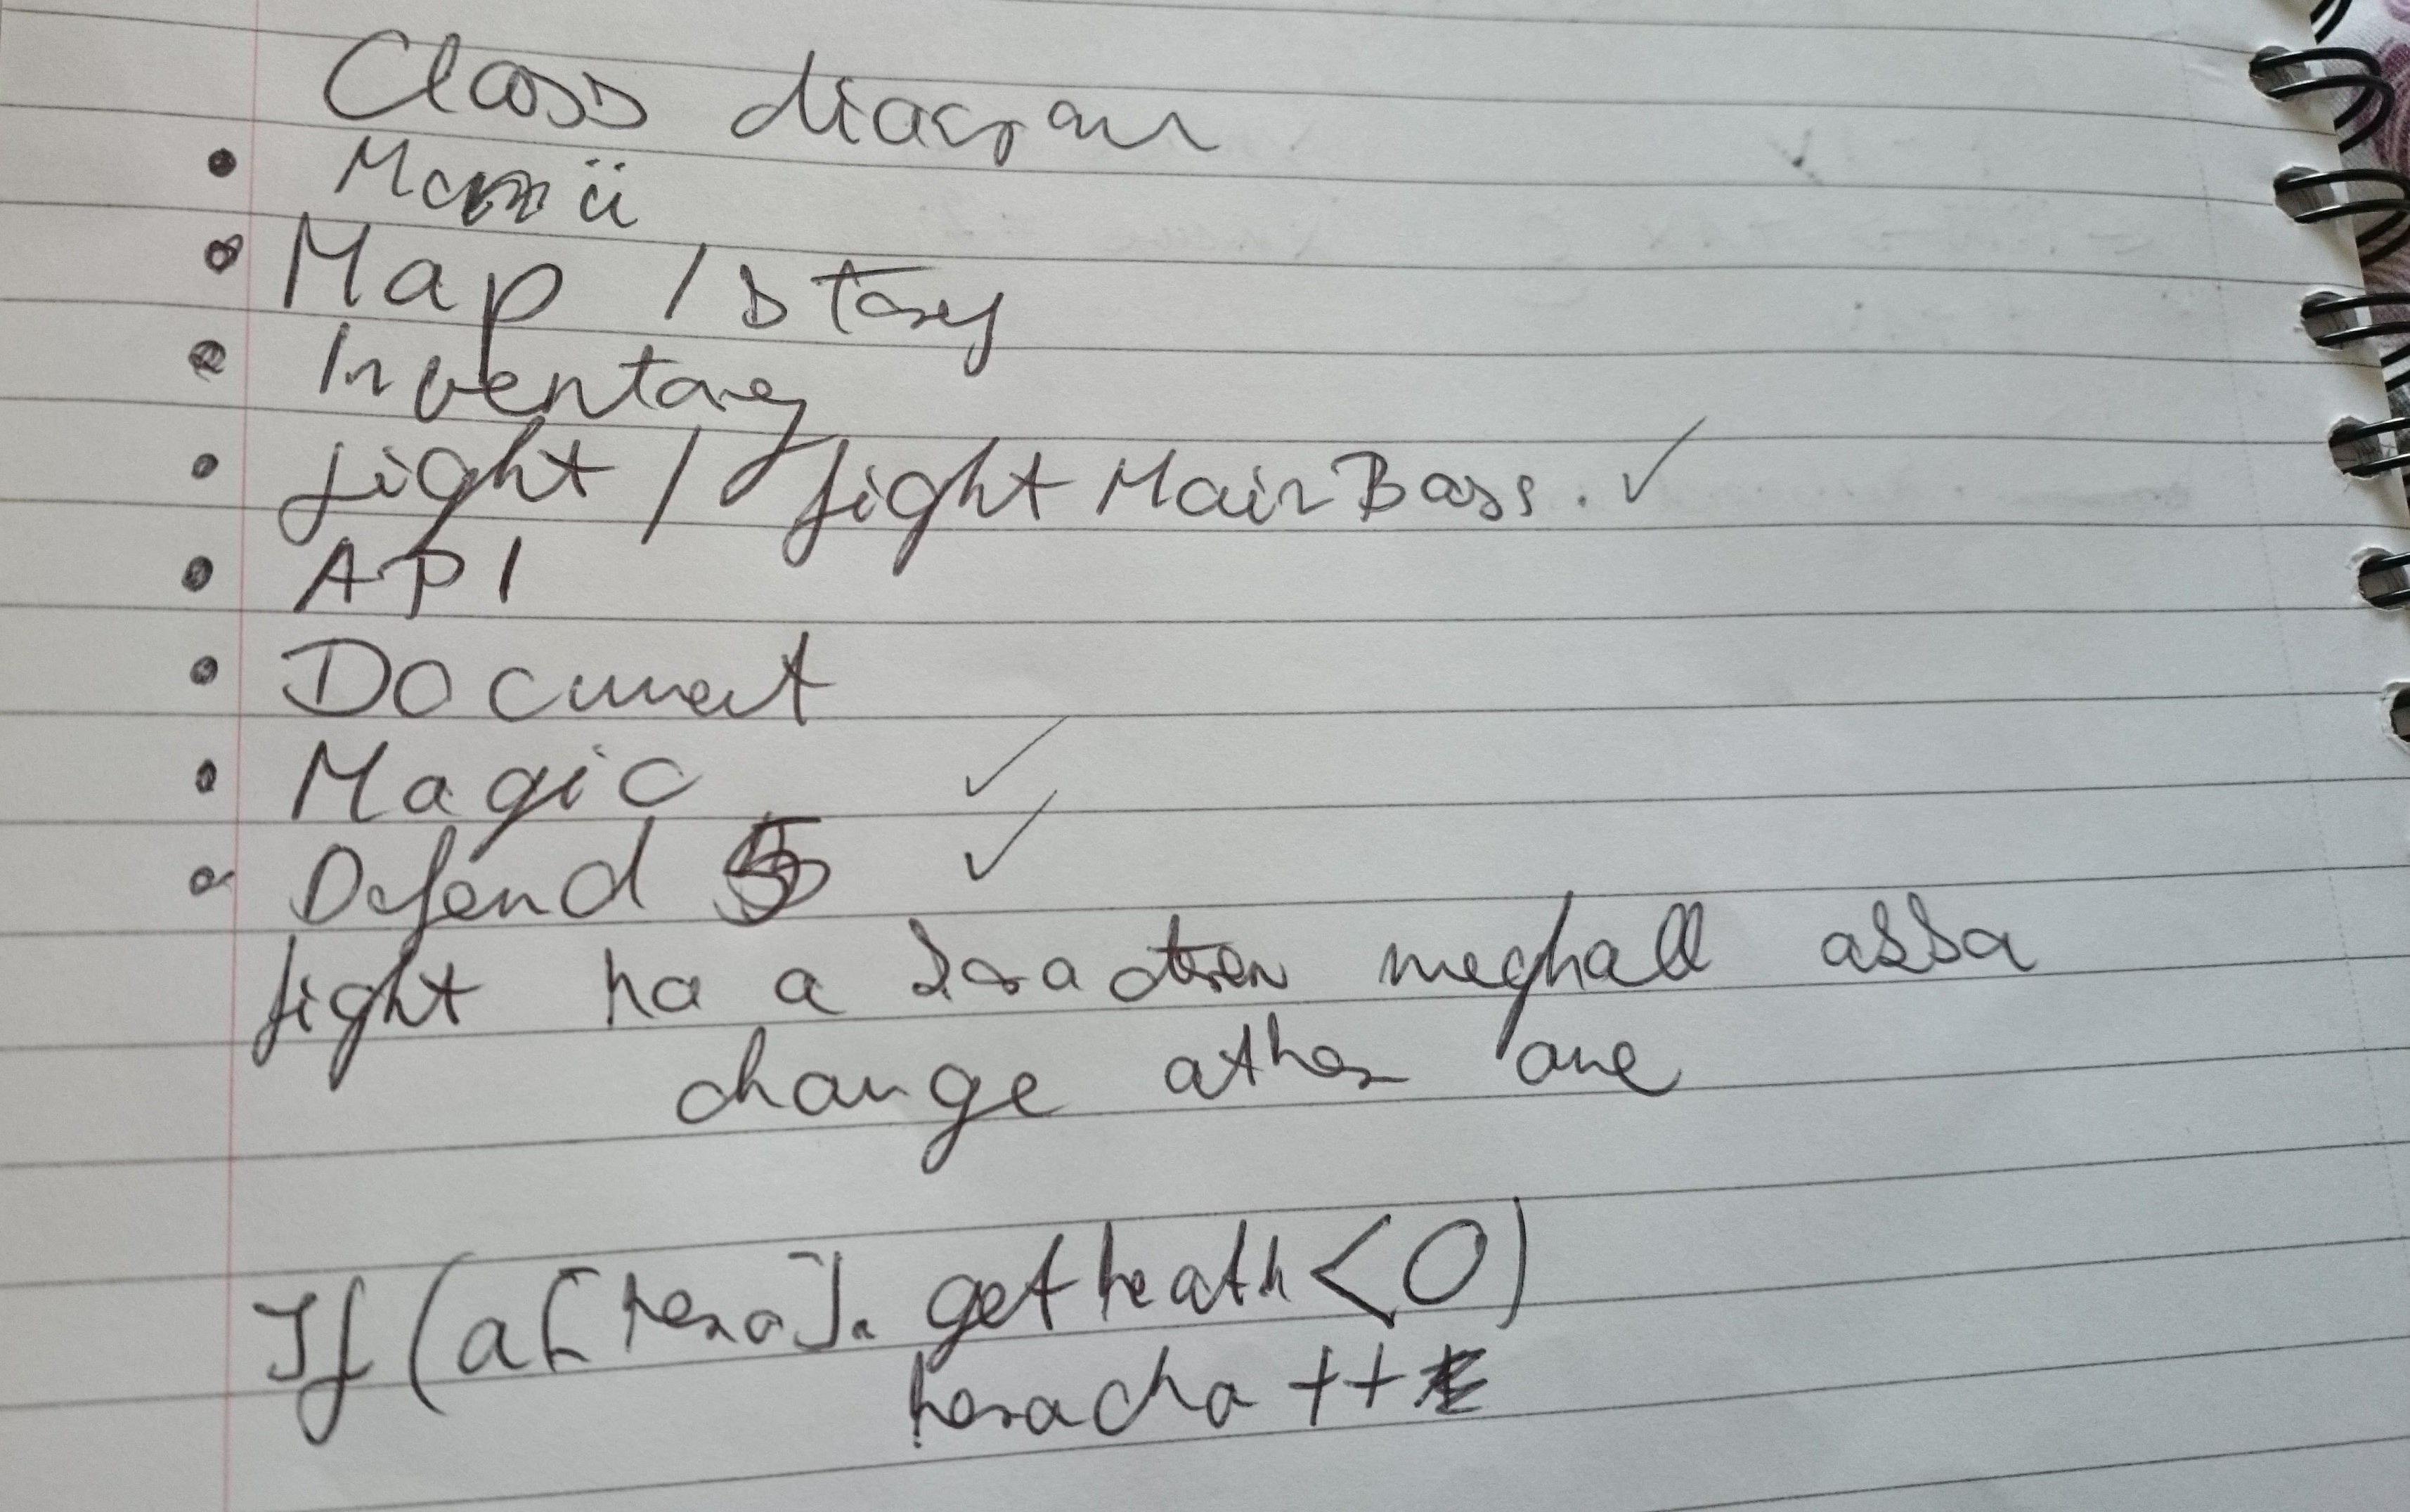 Class diagram
• Menü
• Map / story
• Inventory
• fight / fightMainBoss. ✓
• API
• Document
• Magic ✓
• Defend ✓
fight ha a meghall akkor
change other one
If (a[hero]. getheath<0)
heracha ++